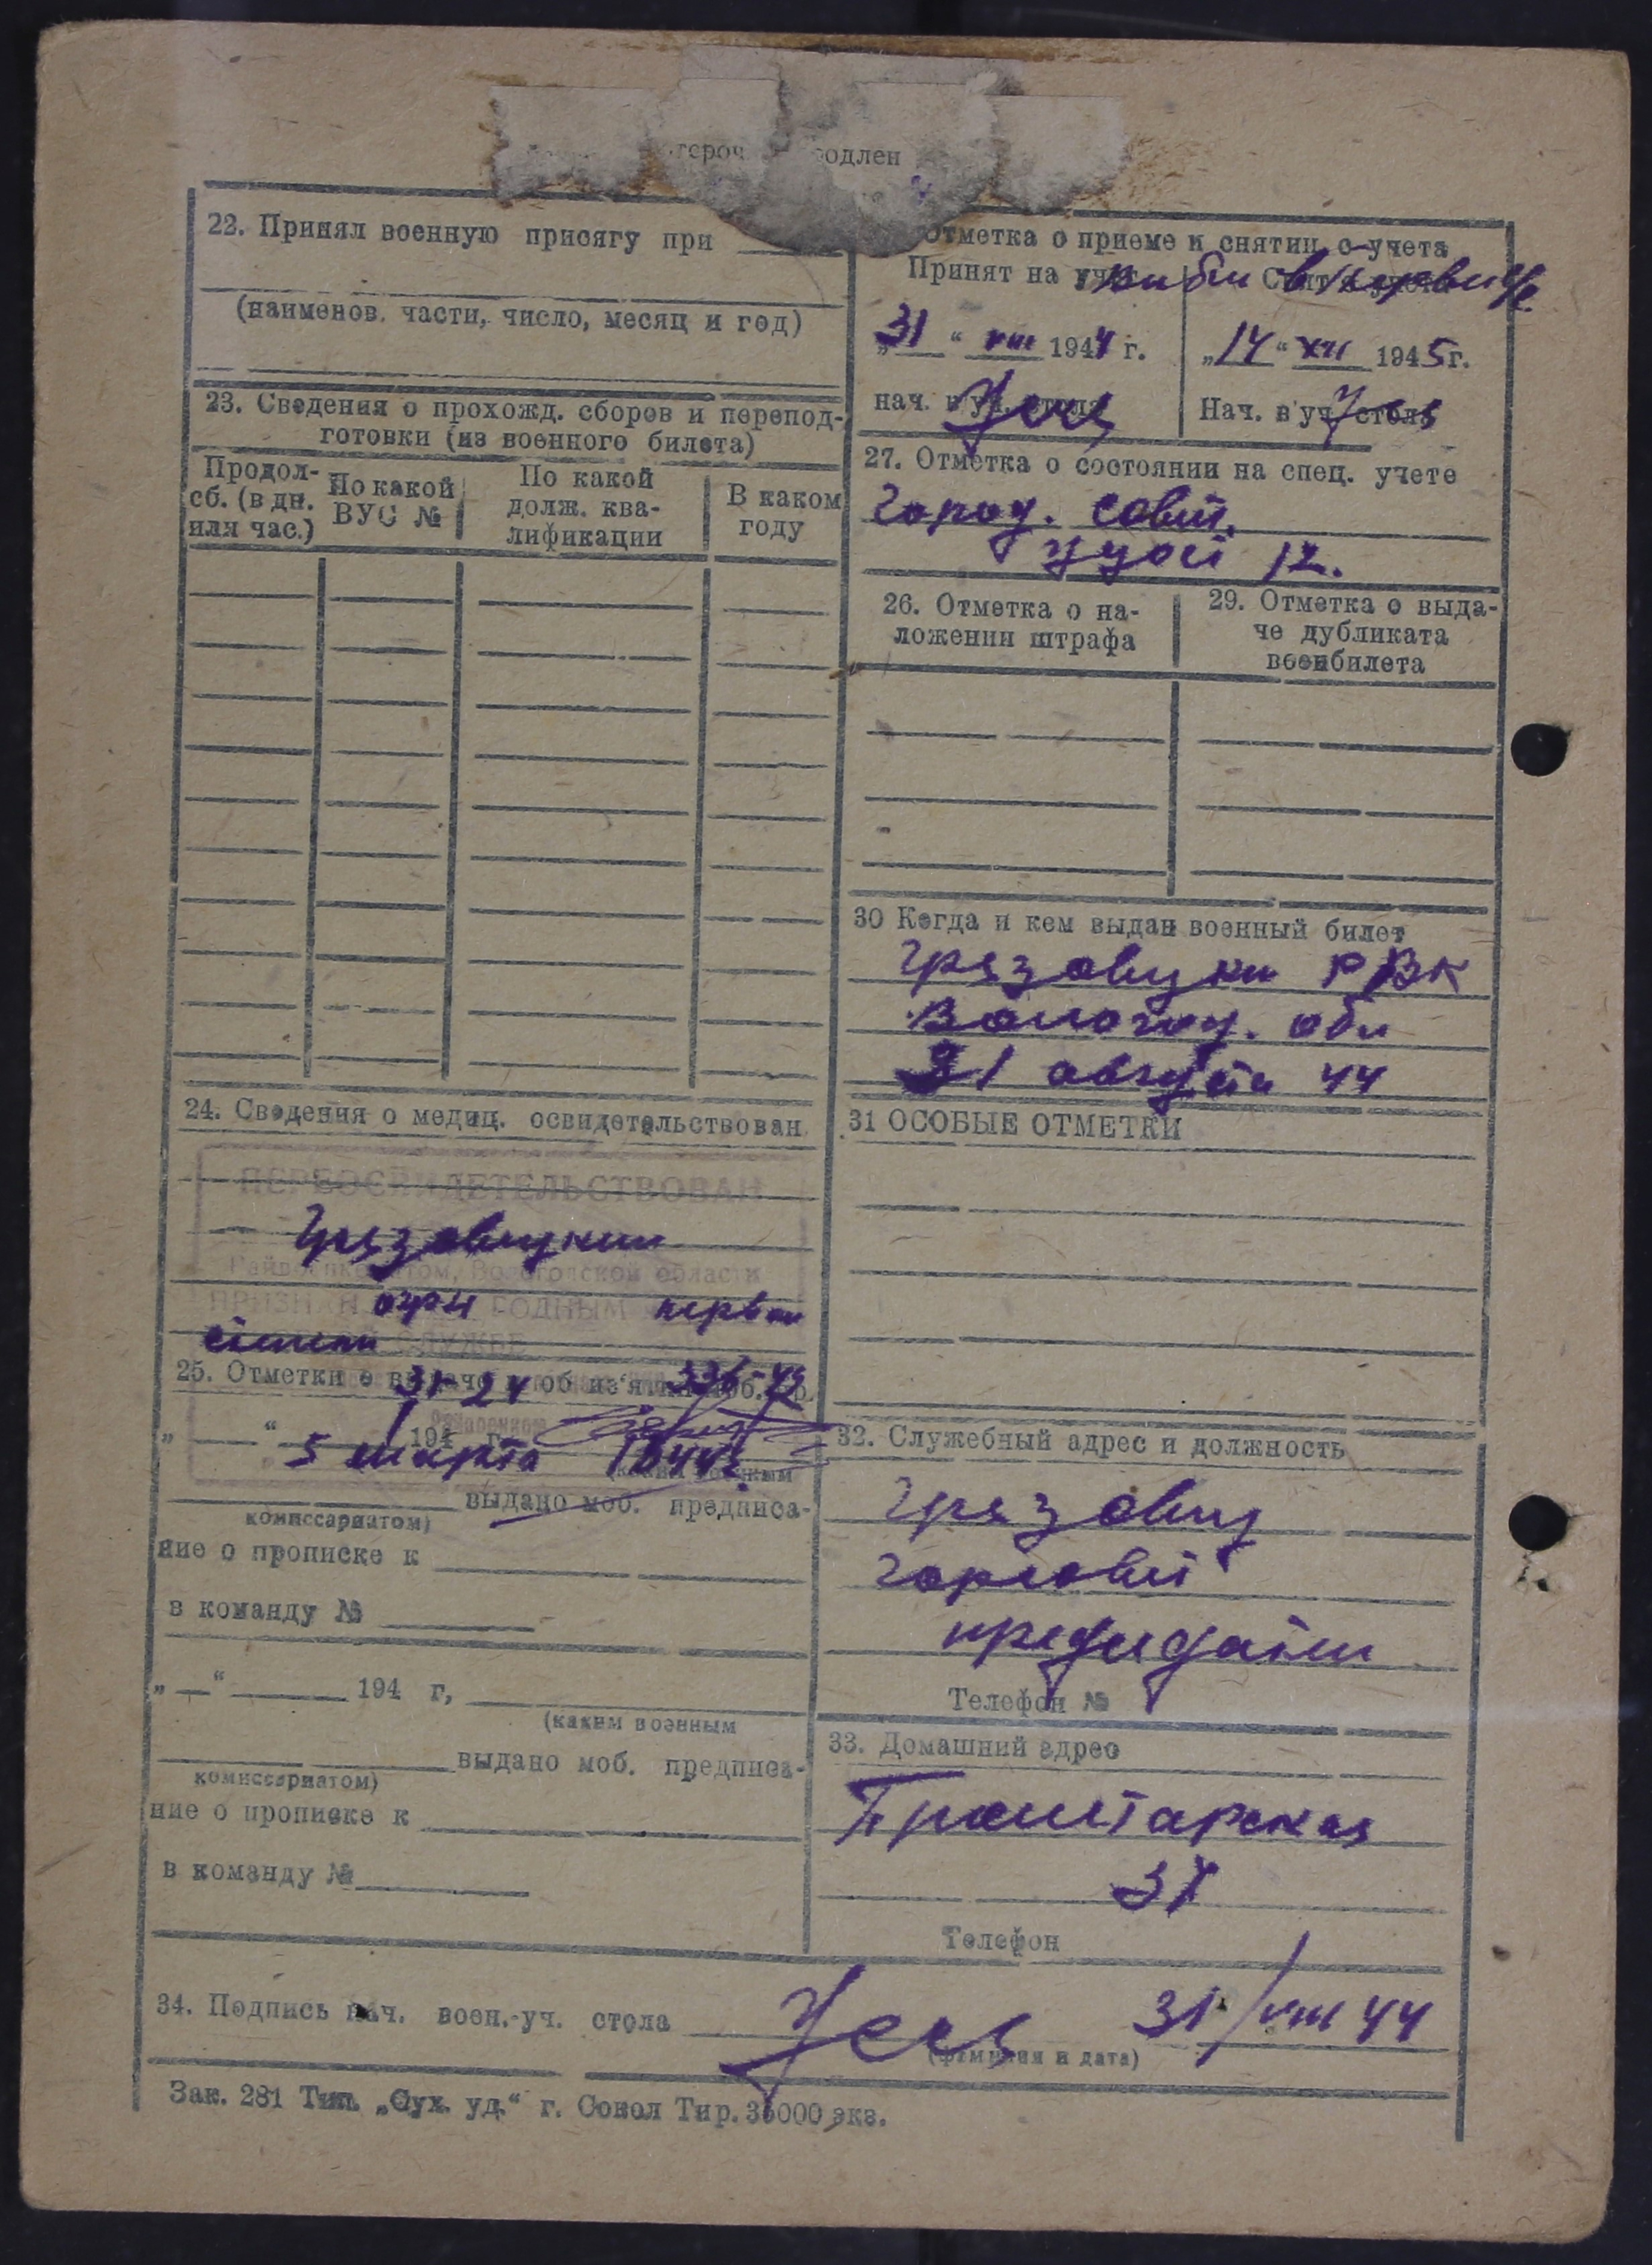 22. Принял военную присягу при
(наименов. части, число, месяц и год)
23. Сведения о прохожд. сборов и перепод-
готовки (из военного билета)
Продол-
сб. (в дн.
или час.)
По какой
ВУС №
По какой
долж. ква-
лификации
В каком
году
24. Сведения о медиц. освидетельствован.
ПЕРЕОСВИДЕТЕЛЬСТВОВАН
Грязовецким
Райвоенкоматом, Вологодской области
ПРИЗНАН огр-н ГОДНЫМ первой
степени СЛУЖБЕ
25. Отметки о выдаче и об из'ятии моб.
5 марта 1944
выдано моб. предписа-
комиссариатом)
ние о прописке к
в команду №
„ “ 194 г,
(каким военным
выдано моб. предписа-
комиссариатом)
ние о прописке к
в команду №
Отметка о приеме и снятии с учета
Принят на
„31“ VIII 1944 г.
„14“ XII 1945 г.
нач.
Нач. в уч стола
27. Отметка о состоянии на спец. учете
город. совет.
12.
26. Отметка о на-
ложении штрафа
29. Отметка о выда-
че дубликата
военбилета
30 Когда и кем выдан военный билет
Грязовецким РВК
Вологод. обл
31 августа 44
31 ОСОБЫЕ ОТМЕТКИ
32. Служебный адрес и должность
Грязовец
горсовет
Телефон №
33. Домашний адрес
Пролетарская
37
Телефон
34. Подпись нач. воен.-уч. стола 31/VIII 44
(фамилия и дата)
Зак. 281 Тип. „Сух. уд.“ г. Сокол Тир. 35000 экз.